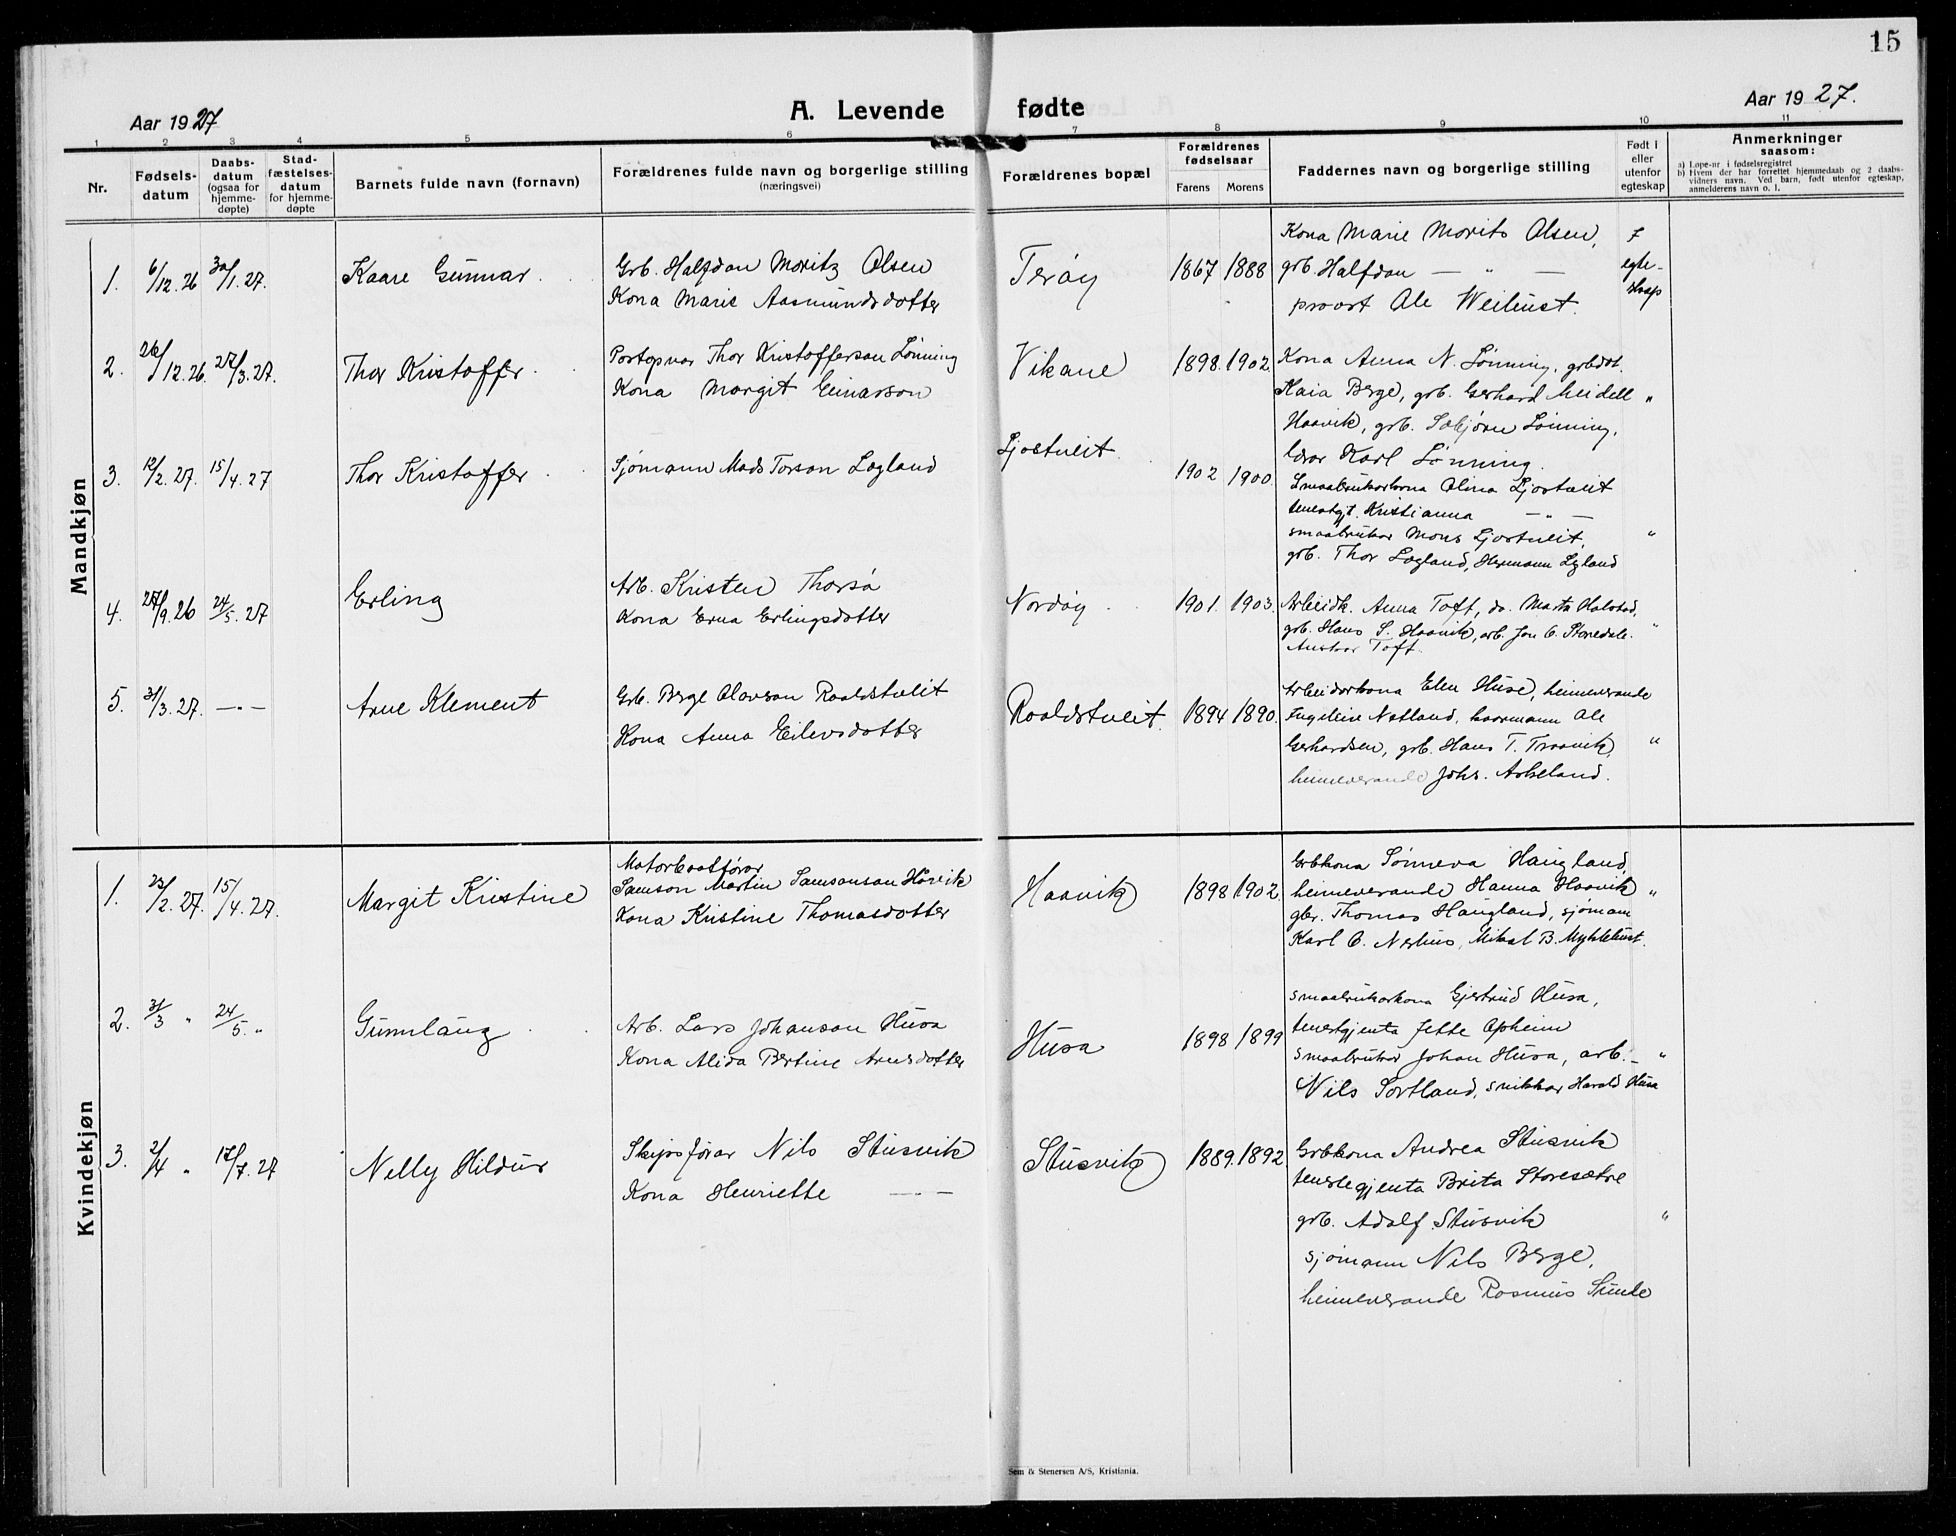 15
Aar 1927
A. Levende fødte
Aar 1927.
1 2 3 4 5 6 7 8 9 10 11
Nr.
Fødsels-
datum
Daabs-
datum
(ogsaa for
hjemme-
døpte)
Stad-
fæstelses-
datum
for hjemme-
døpte
Barnets fulde navn (fornavn)
Forældrenes fulde navn og borgerlige stilling
(næringsvei)
Forældrenes bopæl
Forældrenes
fødselsaar
Farens Morens
Faddernes navn og borgerlige stilling
Født i
eller
utenfor
egteskap
Anmerkninger
saasom:
a) Løpe-nr i fødselsregistret
b) Hvem der har forrettet hjemmedaab og 2 daabs-
vidners navn. Ved barn, født utenfor egteskap,
anmelderens navn o. l.
Mandkjøn
1. 6/12.26 30/1.27. Kaare Gunnar
Grb. Halfdan Moritz Olsen
Kona Marie Aasmundsdotter
Terøy 1867 1888
Kona Marie Morits Olsen,
grb. Halfdan — " —
provst Ole Weilust.
I
egte-
skap
2. 26/12.26. 27/3.27. Thor Kristoffer
Postopnar Thor Kristofferson Lønning
Kona Margit Einarson
Vikane 1898. 1902.
Kona Anna N. Lønning, grbdot.
Kaia Berge, grb. Gerhard Meidell "
Haavik, grb. Lønning,
lærar Karl Lønning.
3. 12/2.27. 15/4.27 Thor Kristoffer
Sjømann Mads Torson Løgland
Ljostveit 1902 1900.
Smaabrukarkona Olina Ljostveit
tenestgjt. Kristianna — " —
smaabrukar Mons Ljostveit, "
grb. Thor Løgland, Hermann Løgland
4. 27/9.26 24/5.27 Erling
Arb. Kristen Thorsø
Kona Erna Erlingsdotter
Nordøy 1901. 1903.
Arbeidk. Anna Toft, do. Marta Halstad,
grb. Hans S. Haavik, arb. Jon O. Storedale. "
Toft.
5. 31/3.27. — " — Arne Klement
Grb. Berge Olavson Raaldstveit
Kona Anna Eilevsdotter
Raaldstveit. 1894 1890.
Arbeidarkona Elen Huse, heimeverande
Engeline Natland, Ole
Gerhardsen, grb. Hans T. Traavik, "
heimeverande Johs. Askeland.
Kvindekjøn
1. 23/2.27. 15/4.27. Margit Kristine
Motorbaatførar
Samson Martin Samsonson Høvik
Kona Kristine Thomasdotter
Haavik 1898 1902.
Grbkona Sønneva Haugland,
heimeverande Hanna Haavik "
gbr. Thomas Haugland, sjømann
Karl O. Nerhus, Mikal B. Myklebust.
2. 31/3 " 24/5. " Gunnlaug
Arb. Lars Johanson Husa
Kona Alida Bertine Arnesdotter
Husa 1898 1899
smaabrukarkona Gjertrud Husa,
tenestgjenta Jette Opheim
smaabrukar Johan Husa, arb. — "
Nils Sortland, snikkar Harald Husa
3. 2/4 " 17/7.27 Nelly Hildur
Skipsførar Nils Stusvik
Kona Henriette — " —
Stusvik 1889. 1892
Grbkona Andrea Stusvik
tenestegjenta Brita Storesætre
grb. Adolf Stusvik "
sjømann Nils Berge,
heimeverande Rasmus Sunde
Sem & Stenersen A/S, Kristiania.